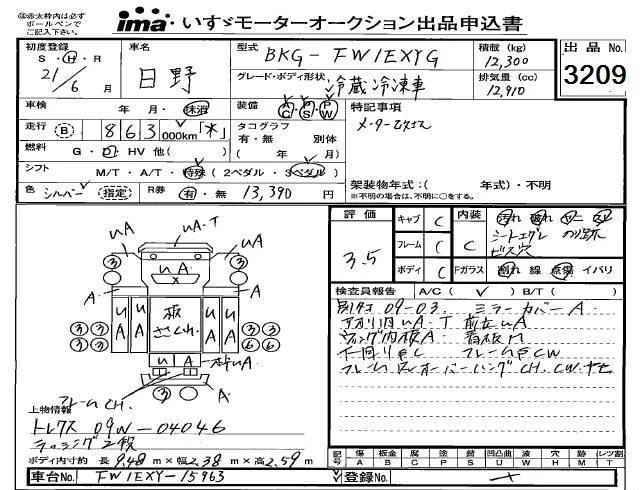 ㊟赤太枠内は必ず
ボールペンで
ご記入下さい。
ima いすゞモーターオークション出品申込書
初度登録
S・H・R
21/6 月
車名
日野
型式 BKG-FW1EXYG
グレード・ボディ形状
冷蔵冷凍車
積載 (kg)
12,300
排気量 (cc)
12,910
出品No.
3209
車検 年・月・抹消
装備 AC PS PW
特記事項
走行 B 863,000km「水」
タコグラフ
有・無 別体
( 年 月)
燃料 G・D・HV 他( )
シフト M/T・A/T・特殊 (2ペダル・3ペダル)
架装物年式:( 年式)・不明
※不明の場合は、不明に○をする。
色 シルバー 指定 R券 有・無 13,390 円
評価 3.5
キャブ C
フレーム C
ボディ C
内装 C
汚れ 破れ
シートエグレ のり跡
ビス穴
Fガラス 割れ 線 点傷 イバリ
検査員報告 A/C( ✓ ) B/T( )
09-03. ミラーカバーA
アオリ内UA・T 前左UA
ウィング内板A 看板M
下回りPC フレームPCW
UA UA・T UA
UA
A A
3 3
UA UA 板 さくCh. UA UA
3 3 3 3
3 6 3 6
UA A
フレームCH. 3 A
上物情報
トレクス 09W-04046
ラッシング2段
ボディ内寸約 長 9.48m×幅2.38m×高2.59m
記号 傷 A 板金 B 腐 C 塗 P 錆 S 凹凸曲 U 波 W 穴 H 歪 M レンズ割 T
車台No. FW1EXY-15963
登録No.